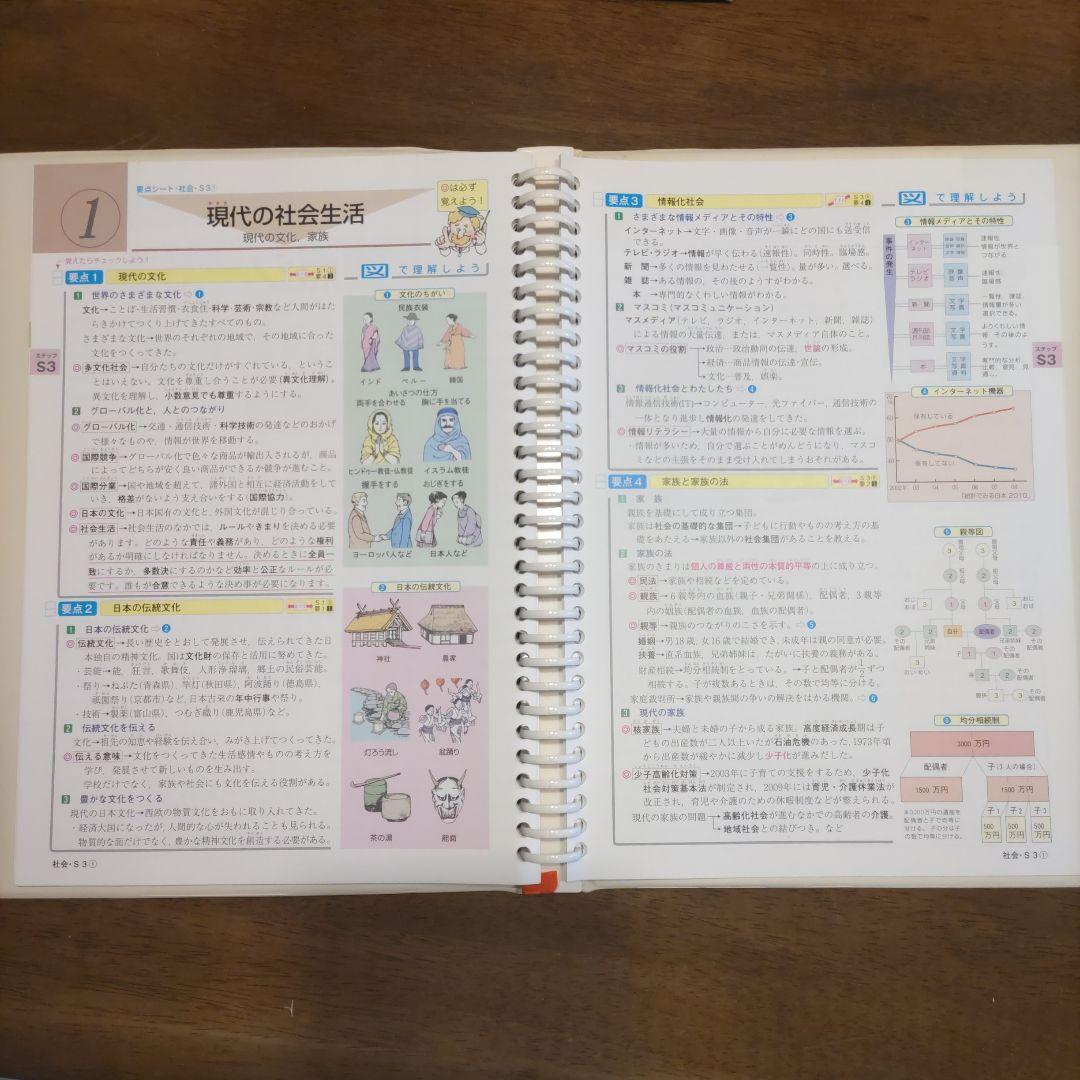 要点シート・社会・S3①
1
現代の社会生活
現代の文化，家族
◎は必ず
覚えよう！
覚えたらチェックしよう！
要点1 現代の文化
図で理解しよう
1 世界のさまざまな文化⇨❶
文化→ことば・生活習慣・衣食住・科学・芸術・宗教など人間がはた
らきかけてつくり上げてきたすべてのもの。
さまざまな文化→世界のそれぞれの地域で，その地域に合った
文化をつくってきた。
◎多文化社会→自分たちの文化だけがすぐれている，というこ
とはいえない。文化を尊重し合うことが必要(異文化理解)。
異文化を理解し，小数意見でも尊重するようにする。
2 グローバル化と，人とのつながり
◎グローバル化→交通・通信技術・科学技術の発達などのおかげ
で様々なものや，情報が世界を移動する。
◎国際競争→グローバル化で色々な商品が輸出入されるが，商品
によってどちらが安く良い商品ができるか競争が進むこと。
◎国際分業→国や地域を超えて，諸外国と相互に経済活動をして
いき，格差がないよう支え合いをする(国際協力)。
◎日本の文化→日本固有の文化と，外国文化が混じり合っている。
◎社会生活→社会生活のなかでは，ルールやきまりを決める必要
があります。どのような責任や義務があり，どのような権利
があるか明確にしなければなりません。決めるときに全員一
致にするか，多数決にするのかなど効率と公正なルールが必
要です。誰もが合意できるような決め事が必要になります。
❶ 文化のちがい
民族衣装
インド ペルー 韓国
あいさつの仕方
両手を合わせる 胸に手を当てる
ヒンドゥー教徒・仏教徒 イスラム教徒
握手をする おじぎをする
ヨーロッパ人など 日本人など
ステップ
S3
要点2 日本の伝統文化
1 日本の伝統文化⇨❷
◎伝統文化→長い歴史をとおして発展させ，伝えられてきた日
本独自の精神文化。国は文化財の保存と活用に努めてきた。
・芸能→能，狂言，歌舞伎，人形浄瑠璃，郷土の民俗芸能。
・祭り→ねぶた(青森県)，竿灯(秋田県)，阿波踊り(徳島県)，
祇園祭り(京都市)など，日本古来の年中行事や祭り。
・技術→製薬(富山県)，つむぎ織り(鹿児島県)など。
2 伝統文化を伝える
文化→祖先の知恵や経験を伝え合い，みがき上げてつくってきた。
◎伝える意味→文化をつくってきた生活感情やものの考え方を
学び，発展させて新しいものを生み出す。
学校だけでなく，家族や社会にも文化を伝える役割がある。
3 豊かな文化をつくる
現代の日本文化→西欧の物質文化をおもに取り入れてきた。
・経済大国になったが，人間的な心が失われることも見られる。
物質的な面だけでなく，豊かな精神文化を創造する必要がある。
❷ 日本の伝統文化
神社 農家
灯ろう流し 盆踊り
茶の湯 能面
社会・S3①
要点3 情報化社会
図で理解しよう
1 さまざまな情報メディアとその特性⇨❸
インターネット→文字・画像・音声が一瞬にどの国にも送受信
できる。
テレビ・ラジオ→情報が早く伝わる(速報性)。同時性。臨場感。
新 聞→多くの情報を見わたせる(一覧性)。量が多い。選べる。
雑 誌→ある情報の，その後のようすがわかる。
本 →専門的なくわしい情報がわかる。
2 マスコミ(マスコミュニケーション)
マスメディア(テレビ，ラジオ，インターネット，新聞，雑誌)
による情報の大量伝達，または，マスメディア自体のこと。
◎マスコミの役割→政治―政治動向の伝達，世論の形成。
→経済―商品情報の伝達・宣伝。
→文化―普及，娯楽。
3 情報化社会とわたしたち⇨❹
情報通信技術(IT)→コンピューター，光ファイバー，通信技術の
一体となり進歩し情報化の発達をしてきた。
◎情報リテラシー→大量の情報から自分に必要な情報を選ぶ。
・情報が多いため，自分で選ぶことがめんどうになり，マスコ
ミなどの主張をそのまま受け入れてしまうおそれがある。
❸ 情報メディアとその特性
事件の発生
インターネット
速報性
情報が世界と
つながる
テレビ ラジオ
映像 音声
速報性，
臨場感
新 聞
文字 写真
一覧性，確認，
情報量が多い
選択できる。
週刊誌 月刊誌
文字 写真
よりくわしい情
報，その後のよ
うす。
本
文字 写真 資料
❹ インターネット機器
保有している
保有してない
2002年 03 04 05 06 07 08
「統計でみる日本 2010」
ステップ
S3
要点4 家族と家族の法
1 家 族
親族を基礎にして成り立つ集団。
家族は社会の基礎的な集団→子どもに行動やものの考え方の基
礎をあたえる→家族以外の社会集団があることを教える。
2 家族の法
家族のきまりは個人の尊厳と両性の本質的平等の上に成り立つ。
◎民法→家族や相続などを定めている。
◎親族→6親等内の血族(親子・兄弟関係)，配偶者，3親等
内の姻族(配偶者の血族，血族の配偶者)。
◎親等→親族のつながりのこさを示す。⇨❺
婚姻→男18歳，女16歳で結婚でき，未成年は親の同意が必要。
扶養→直系血族，兄弟姉妹は，たがいに扶養の義務がある。
財産相続→均分相続制をとっている。→子と配偶者が1/2ずつ
相続する。子が複数あるときは，その数で均等に分ける。
家庭裁判所→家族や親族間の争いの解決をはかる機関。⇨❻
3 現代の家族
◎核家族→夫婦と夫婦の子から成る家族。高度経済成長期は子
どもの出産数が二人以上いたが石油危機のあった，1973年頃
から出産数が緩やかに減少し少子化が進みだした。
◎少子高齢化対策→2003年に子育ての支援をするため，少子化
社会対策基本法が制定され，2009年には育児・介護休業法が
改正され，育児や介護のための休暇制度などが整えられる。
現代の家族の問題→高齢化社会が進むなかでの高齢者の介護。
→地域社会との結びつき。など
❺ 親等図
自分 配偶者
❻ 均分相続制
3000万円
配偶者 子(3人の場合)
1500万円 1500万円
子1 子2 子3
500万円 500万円 500万円
※3000万円の遺産を
配偶者と子で均等に
分ける。子の分は子
の数で均等に分ける。
社会・S3①